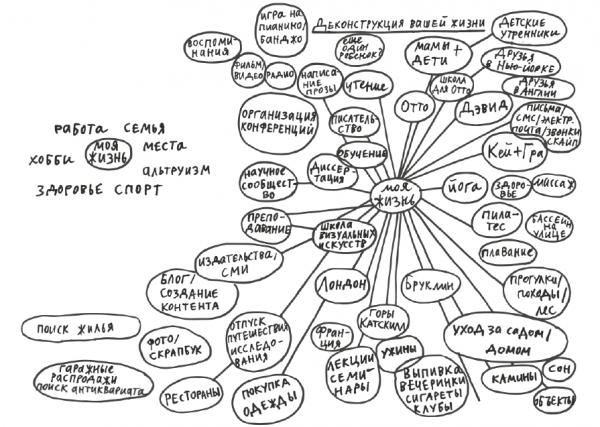 Деконструкция вашей жизни
игра на
пианино/
банджо
воспоми-
нания
фильм/
видео
радио
написа-
ние
прозы
еще
один
ребенок?
чтение
мамы +
дети
детские
утренники
школа
для Отто
друзья
в Нью-Йорке
друзья
в Англии
Отто
Дэвид
письма/
смс/электр.
почта/звонки
скайп
организация
конференций
писатель-
ство
обучение
Кей+Гра
работа семья
моя
жизнь
места
хобби
альтруизм
здоровье спорт
научное
сообщест-
во
диссер-
тация
моя
жизнь
йога
здоро-
вье
массаж
препо-
давание
школа
визуальных
искусств
пила-
тес
бассейн
на
улице
плавание
издательства/
СМИ
блог/
создание
контента
Лондон
Бруклин
прогулки/
походы/
лес
поиск жилья
фото/
скрапбук
отпуск
путешествия
исследо-
вания
горы
Катскилл
Фран-
ция
ужины
уход за садом/
домом
гаражные
распродажи
поиск антиквариата
рестораны
покупка
одежды
лекции
семи-
нары
выпивка
вечеринки
сигареты
клубы
камины
сон
объекты